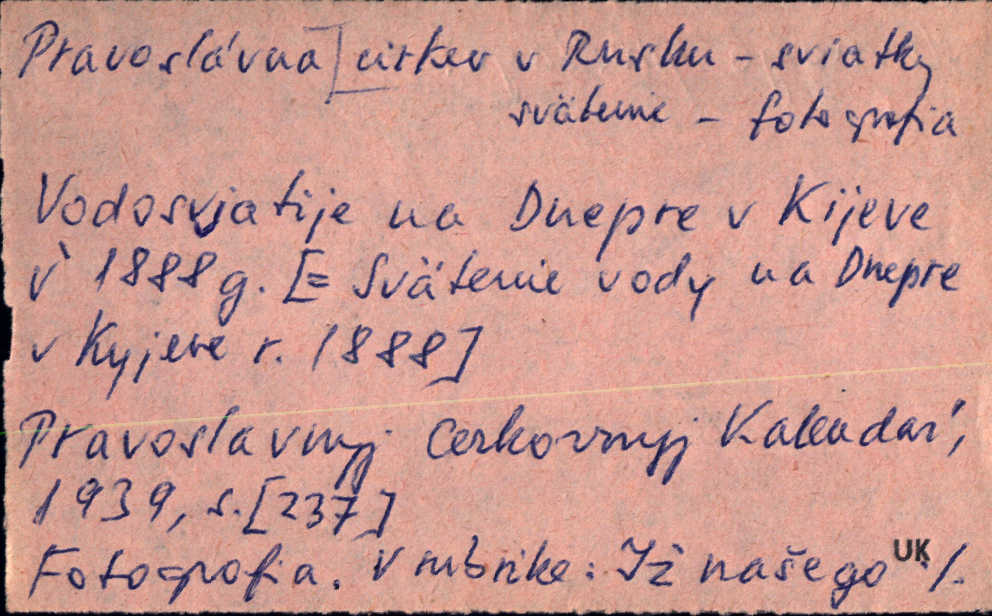 Pravoslávna] cirkev v Rusku - sviatky
svätenie - fotografia
Vodosvjatije na Dnepre v Kijeve
v 1888 g. [= Svätenie vody na Dnepre
v Kyjeve r. 1888]
Pravoslavnyj Cerkovnyj Kalendar',
1939, s. [237]
Fotografia. V rubrike: Iž našego UK ·/.